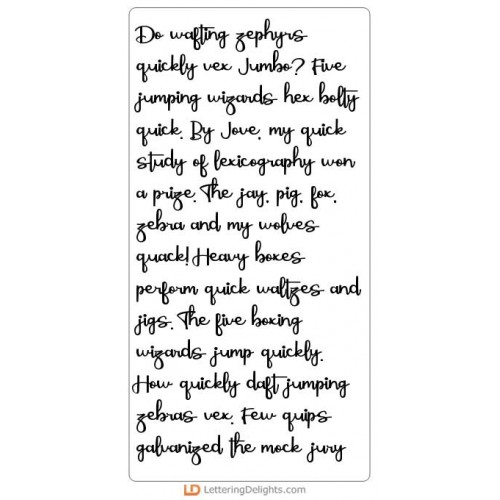 Do wafting zephyrs
quickly vex Jumbo? Five
jumping wizards hex bolty
quick. By Jove, my quick
study of lexicography won
a prize. The jay, pig, fox,
zebra and my wolves
quack! Heavy boxes
perform quick waltzes and
jigs. The five boxing
wizards jump quickly.
How quickly daft jumping
zebras vex. Few quips
galvanized the mock jury
LD LetteringDelights.com